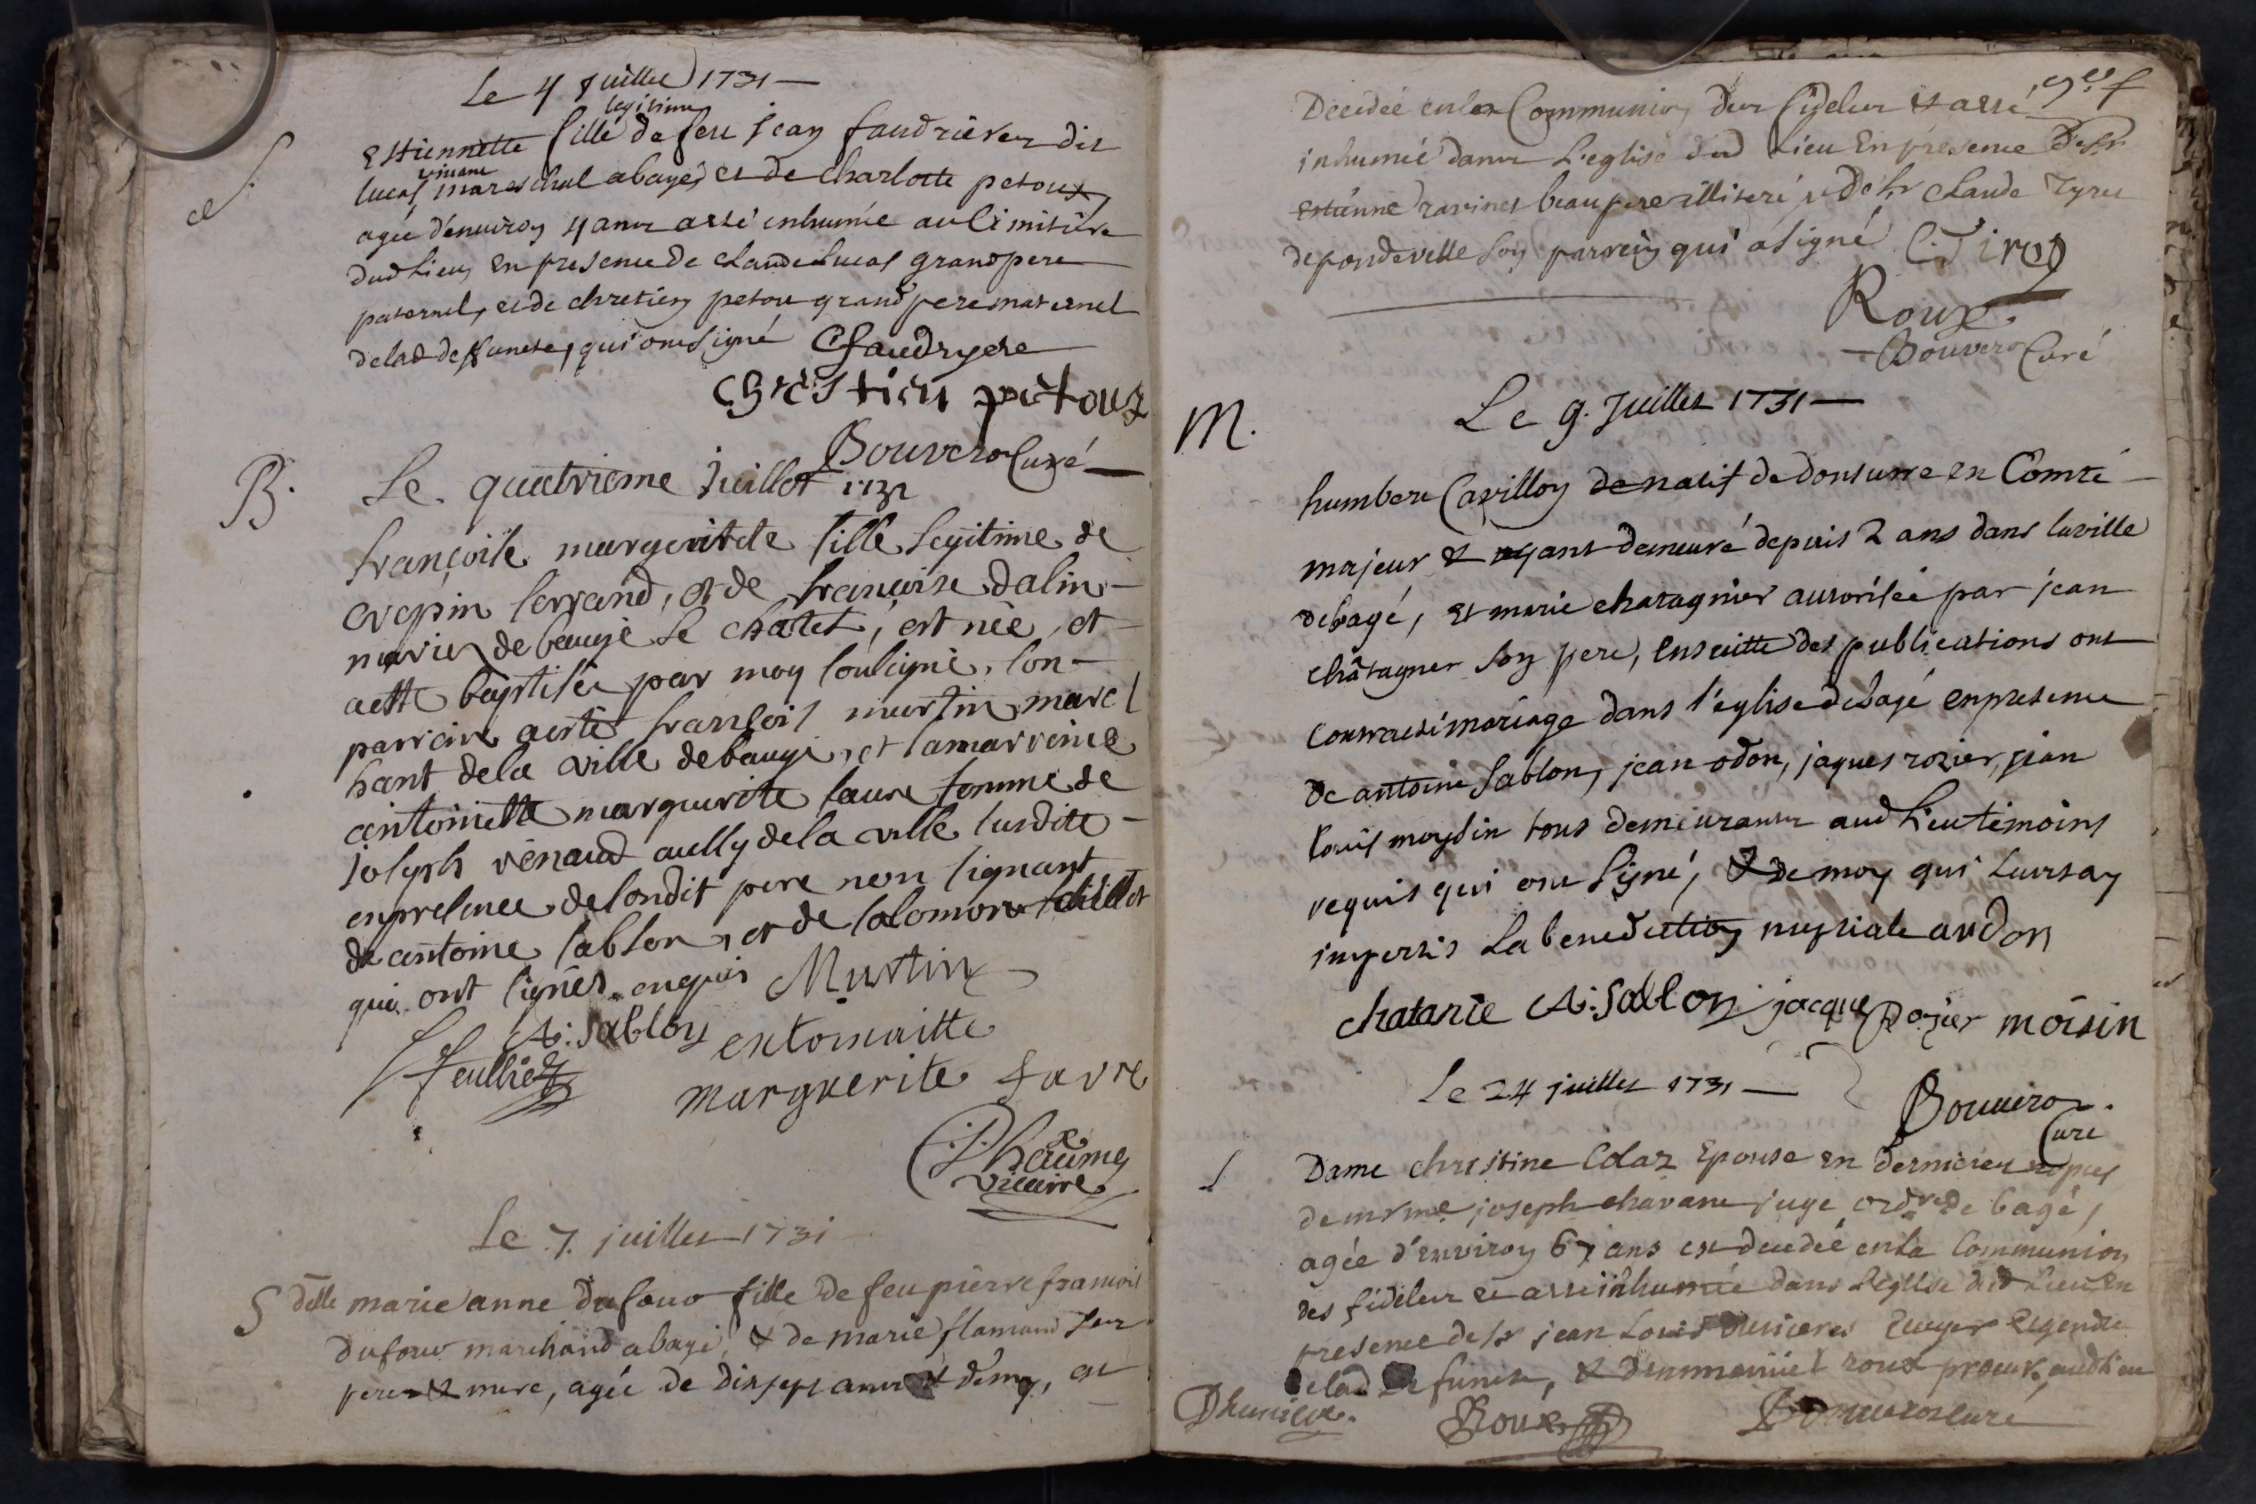 Le 4 Juillet 1731
S.
legitime
Estiennette fille de feu jean faudrieres dit
vivant
lucas mareschal a bagé, et de Charlotte petoux
agée d'environ 4 ans a esté inhumée au Cimitiere
dud Lieu, en presence de Claude Lucas grand pere
paternel, et de chretien petoux grand pere maternel
de lad deffuncte, qui ont signé Cfaudryere
Chrestien petoux
Bouveron Curé
B.
Le quatrieme Juillet 1731
françoise margueritte fille legitime de
crepin ferrand, et de françoise dalin
mariez de baugé le chatel, est née, et
a esté baptisée par moy soussigné, son
parrein a esté françois martin marc
hant de la ville de baugé, et la marreine
antoinette marguerite faure femme de
joseph renaud aussy de la ville susditte
en presence de sondit pere non signant
de antoine sablon, et de salomon
qui ont signés enquis Martin
A: Sablon
antoinaitte
marguerite favre
Dhaumes
vicaire
Le 7. juillet 1731
S
delle marie anne dufour fille de feu pierre francois
dufour marchand a bagé, & de marie flamand ses
pere & mere, agée de dix sept ans & demy, est
Decedée en la Communion des fideles et a esté
inhumée dans L'eglise dud Lieu En présence De Sr
Estienne ravinet beaupere illiteré, & de Sr claude Tyron
de pondeville son parrein qui a signé C. Tiron
Roux
Bouveron Curé
M.
Le 9. Juillet 1731
humbert Cavillon de natif de donsurre en Comté
majeur & ayant demeuré depuis 2 ans dans la ville
de bagé, et marie chatagnier autorisée par jean
châtagner son pere, ensuitte des publications ont
contracté mariage dans l'eglise de bagé en presence
de antoine Sablon, jean odon, jaques rozier, jean
louis moysin tous demeurants aud Lieu temoins
requis qui ont signé, & de moy qui Leurs ay
impertis La benediction nuptiale audon
chatanie A: Sablon jacque Rozier moisin
Bouveron
Curé
Le 24 juillet 1731
S
Dame christine Colaz Epouse en dernieres nopces
de mr me joseph chavane juge ordre de bagé,
agée d'environ 67 ans est decedée en la Communion
des fideles et a esté inhumée dans L'eglise dud Lieu En
presence de Sr jean Louis Ecuyer gendre
de lad defuncte, & d'emmanuel roux procur. aud Lieu
Roux
Bouveron curé